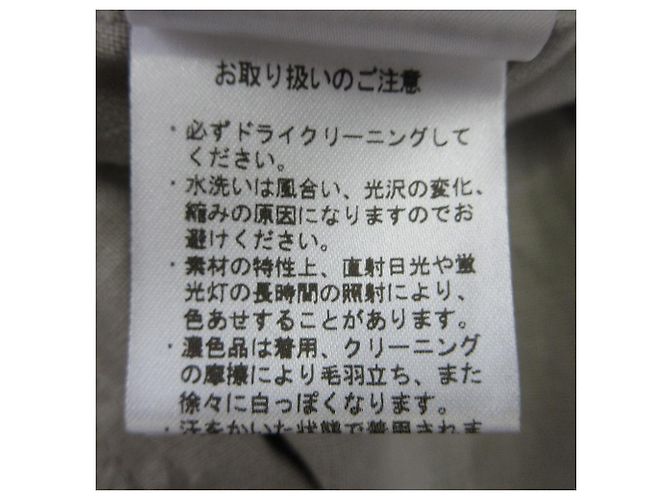 お取り扱いのご注意
・必ずドライクリーニングして
ください。
・水洗いは風合い、光沢の変化、
縮みの原因になりますのでお
避けください。
・素材の特性上、直射日光や蛍
光灯の長時間の照射により、
色あせすることがあります。
・濃色品は着用、クリーニング
の摩擦により毛羽立ち、また
徐々に白っぽくなります。
・汗をかいた状態で着用されま